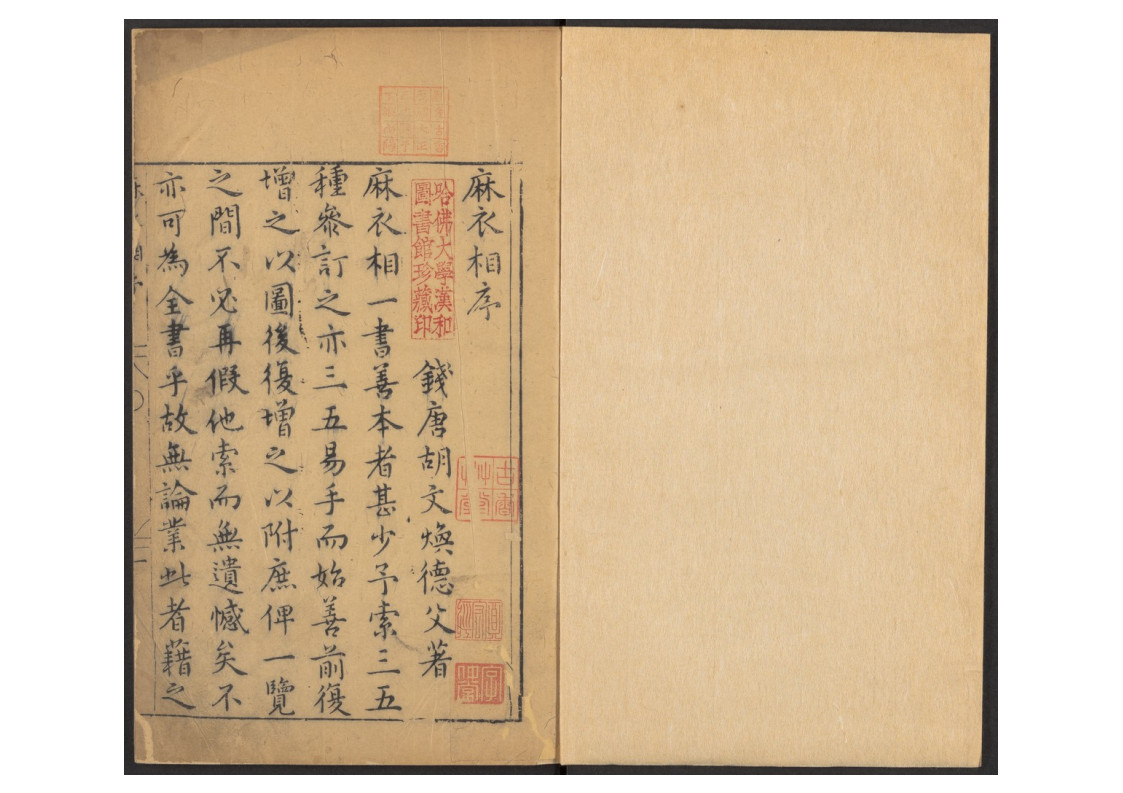 麻衣相序
錢唐胡文煥德父著
麻衣相一書善本者甚少予索三五
種叅訂之亦三五易手而始善前復
增之以圖後復增之以附庶俾一覽
之間不必再假他索而無遺憾矣不
亦可為全書乎故無論業此者藉之
哈佛大學漢和
圖書館珍藏印